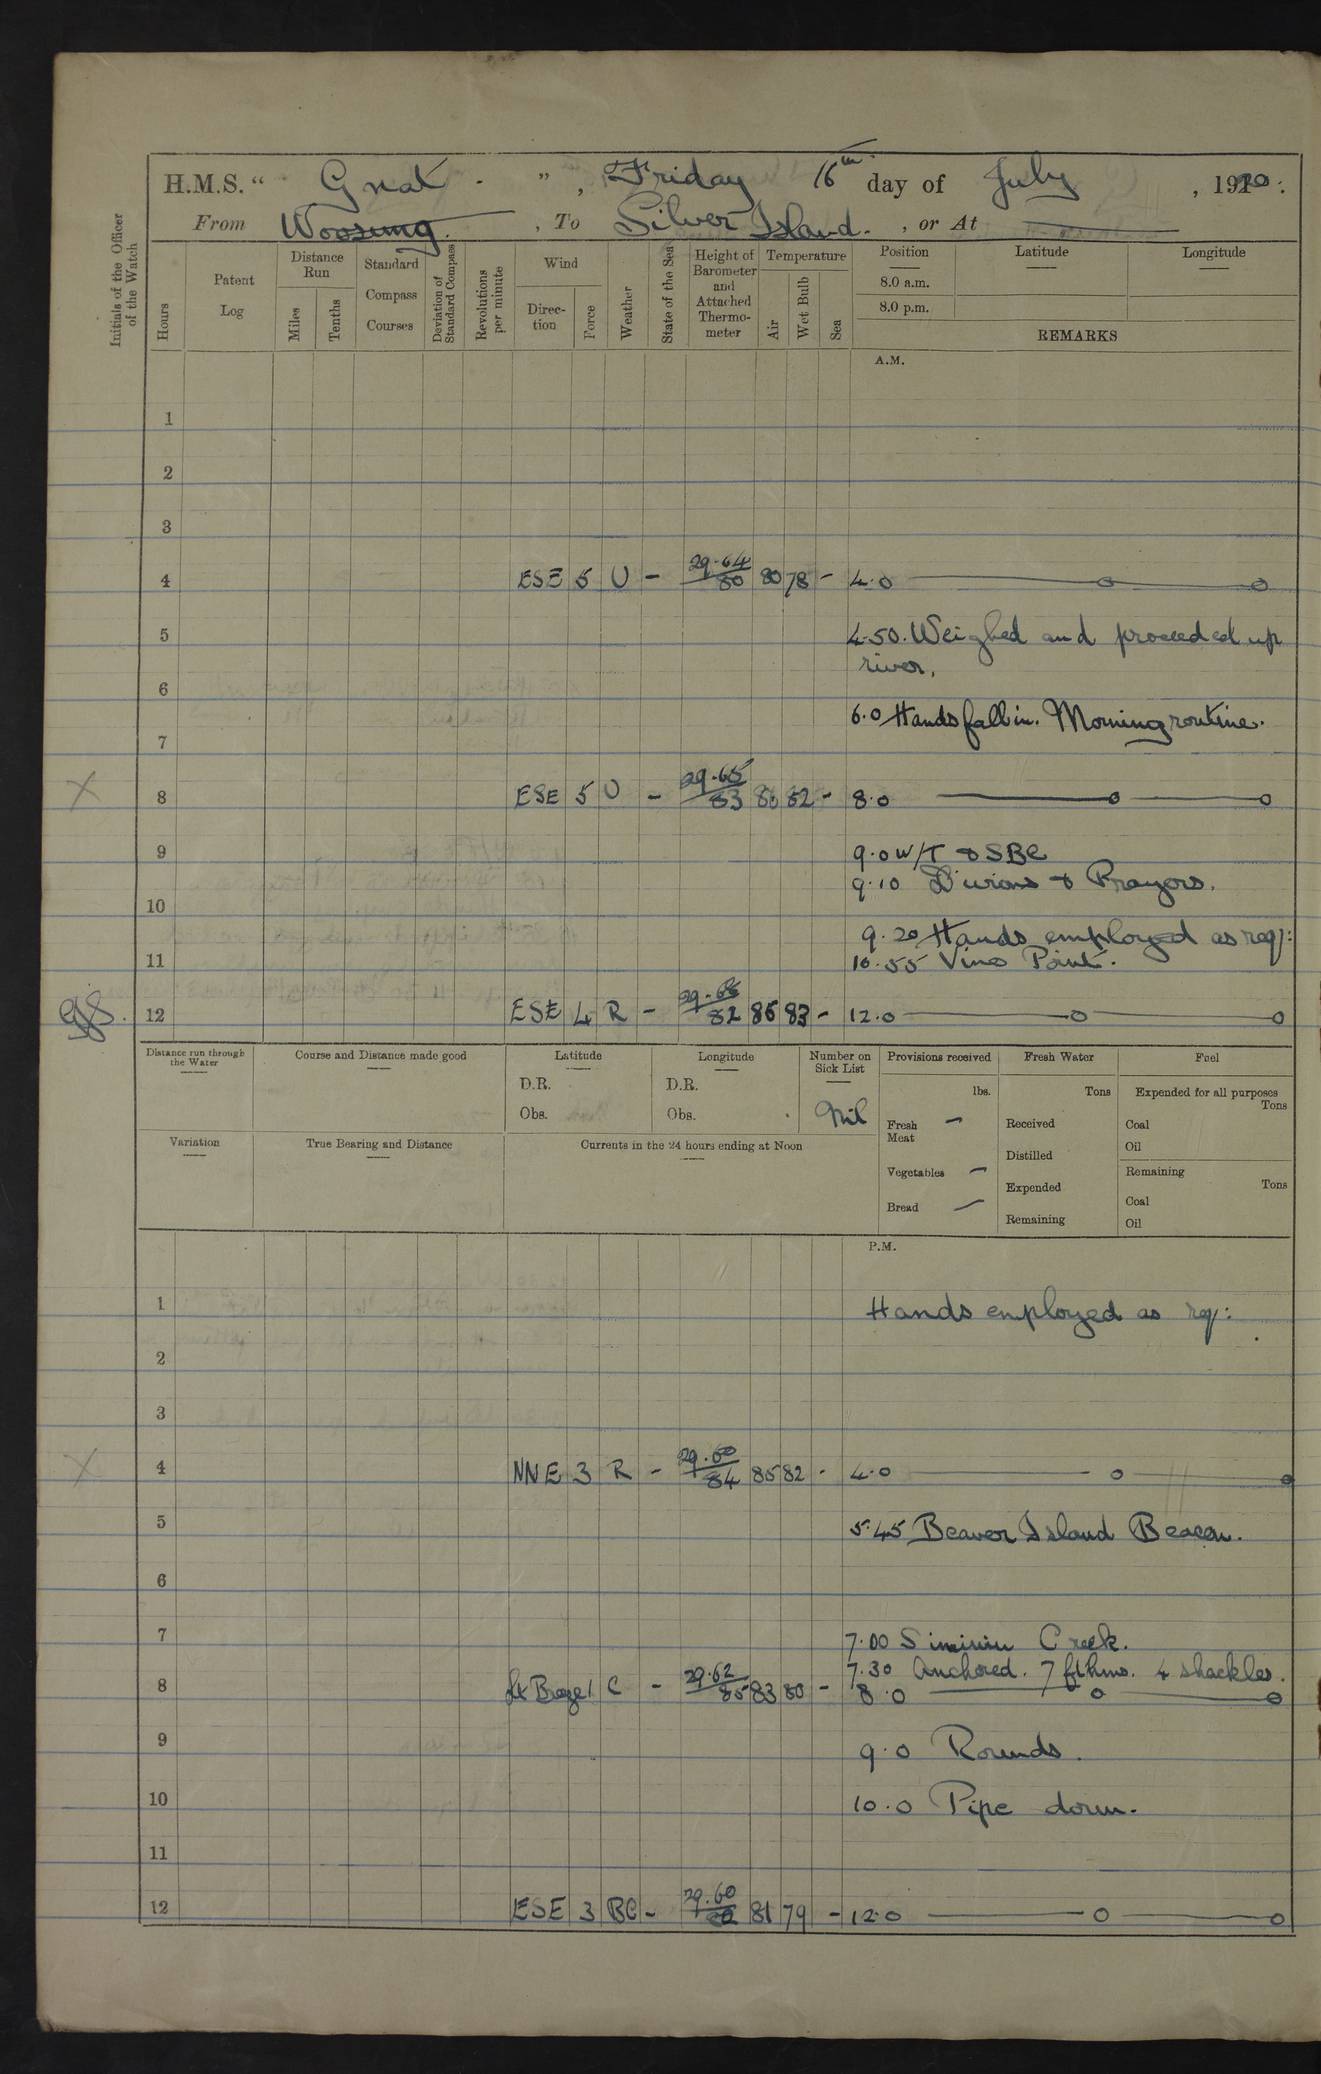 H.M.S. “ Gnat. ” , Friday 16th day of July , 1920 :
From Woosung. , To Silver Island. , or At
Initials of the Officer of the Watch
Hours
Patent Log
Distance Run
Miles
Tenths
Standard Compass Courses
Deviation of Standard Compass
Revolutions per minute
Wind
Direc-tion
Force
Weather
State of the Sea
Height of Barometer and Attached Thermo-meter
Temperature
Air
Wet Bulb
Sea
Position
8.0 a.m.
8.0 p.m.
Latitude
Longitude
REMARKS
A.M.
1
2
3
4 ESE 5 U - 29.64 80 80 78 - 4.0
5 4.50. Weighed and proceeded up
river.
6
6.0 Hands fall in. Morning routine.
7
X 8 ESE 5 U - 29.65 83 82 - 8.0
9 9.0 W/T & SBC
9.10 Divions & Prayers.
10
9.20 Hands employed as req:
11 10.55 Point.
12 ESE 4 R - 82 86 83 - 12.0
Distance run through the Water
Course and Distance made good
Latitude
D.R.
Obs.
Longitude
D.R.
Obs.
Number on Sick List
Nil
Provisions received
lbs.
Fresh Meat -
Vegetables -
Bread -
Fresh Water
Tons
Received
Distilled
Expended
Remaining
Fuel
Expended for all purposes
Tons
Coal
Oil
Remaining
Tons
Coal
Oil
Variation
True Bearing and Distance
Currents in the 24 hours ending at Noon
P.M.
1 Hands employed as req:
2
3
X 4 NNE 3 R - 29.60 84 85 82 - 4.0
5 5.45 Beaver Island Beacon.
6
7 7.00 Creek.
7.30 Anchored. 7 fthms. 4 shackles.
8 1 C - 29.62 85 83 80 - 8.0
9 9.0 Rounds.
10 10.0 Pipe down.
11
12 ESE 3 BC - 29.60 81 79 - 12.0